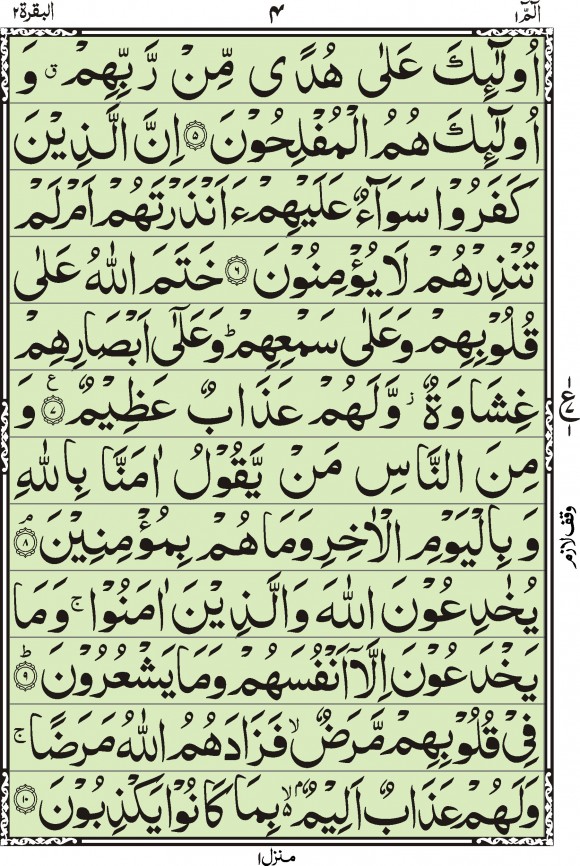 الٓمّٓ ۱
۴
البقرة ۲
اُولٰٓئِكَ عَلٰى هُدًى مِّنْ رَّبِّهِمْ ۗ وَ
اُولٰٓئِكَ هُمُ الْمُفْلِحُوْنَ ۵ اِنَّ الَّذِيْنَ
كَفَرُوْا سَوَآءٌ عَلَيْهِمْ ءَاَنْذَرْتَهُمْ اَمْ لَمْ
تُنْذِرْهُمْ لَا يُؤْمِنُوْنَ ۶ خَتَمَ اللّٰهُ عَلٰى
قُلُوْبِهِمْ وَعَلٰى سَمْعِهِمْ ؕ وَعَلٰٓى اَبْصَارِهِمْ
غِشَاوَةٌ ز وَّلَهُمْ عَذَابٌ عَظِيْمٌ ع ۷ وَ
مِنَ النَّاسِ مَنْ يَّقُوْلُ اٰمَنَّا بِاللّٰهِ
وَبِالْيَوْمِ الْاٰخِرِ وَمَا هُمْ بِمُؤْمِنِيْنَ ۘ ۸
يُخٰدِعُوْنَ اللّٰهَ وَالَّذِيْنَ اٰمَنُوْا ۚ وَمَا
يَخْدَعُوْنَ اِلَّاۤ اَنْفُسَهُمْ وَمَا يَشْعُرُوْنَ ؕ ۹
فِيْ قُلُوْبِهِمْ مَّرَضٌ ۙ فَزَادَهُمُ اللّٰهُ مَرَضًا ۚ
وَلَهُمْ عَذَابٌ اَلِيْمٌ ۢ ۙ۬ بِمَا كَانُوْا يَكْذِبُوْنَ ۱۰
وقف لازم
منزل ۱